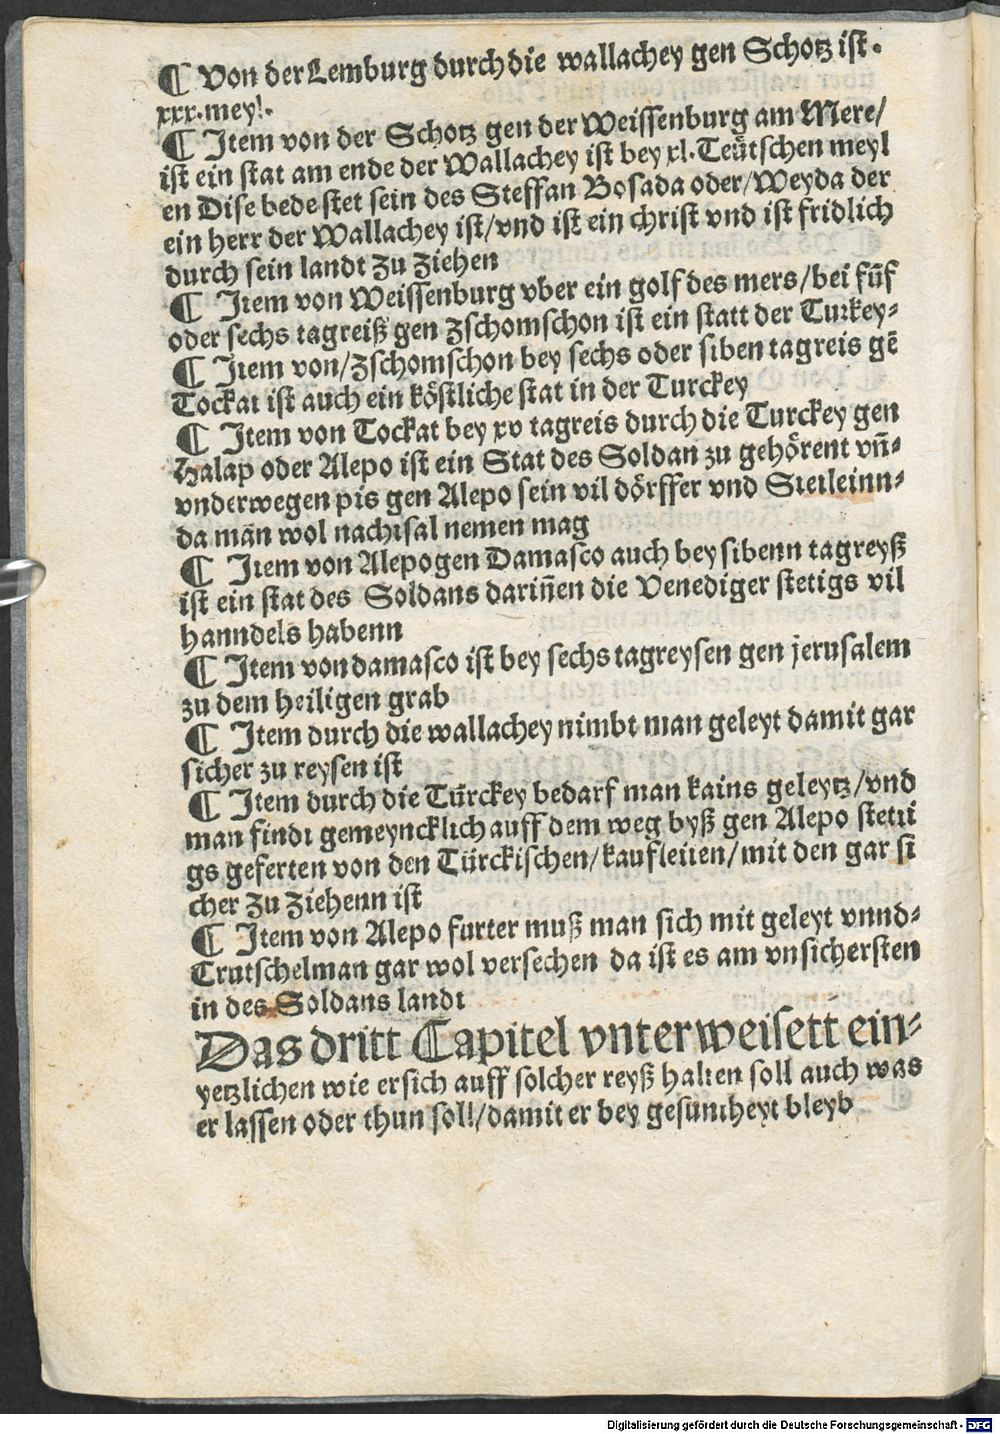 ¶ Von der Lemburg durch die wallachey gen Schotz ist.
xxx.meyl.
¶ Item von der Schotz gen der Weissenburg am Mere/
ist ein stat am ende der Wallachey ist bey xl. Teütschen meyl
en Dise bede stet sein des Steffan Bosada oder/Weyda der
ein herr der Wallachey ist/vnd ist ein christ vnd ist fridlich
durch sein landt zu ziehen
¶ Item von Weissenburg vber ein golf des mers/bei fűf
oder sechs tagreiß gen Zschomschon ist ein statt der Turkey-
¶ Item von/Zschomschon bey sechs oder siben tagreis gē
Tockat ist auch ein köstliche stat in der Turckey
¶ Item von Tockat bey xv tagreis durch die Turckey gen
Halap oder Alepo ist ein Stat des Soldan zu gehörent vn̄-
vnderwegen pis gen Alepo sein vil dörffer vnd Stetleinn-
da man wol nachtsal nemen mag
¶ Item von Alepo gen Damasco auch bey sibenn tagreyß
ist ein stat des Soldans darin̄en die Venediger stetigs vil
hanndels habenn
¶ Item von damasco ist bey sechs tagreysen gen jerusalem
zu dem heiligen grab
¶ Item durch die wallachey nimbt man geleyt damit gar
sicher zu reysen ist
¶ Item durch die Türckey bedarf man kains geleytz/vnd
man findt gemeyncklich auff dem weg byß gen Alepo steti
gs geferten von den Türckischen/kaufleiten/mit den gar si
cher zu ziehenn ist
¶ Item von Alepo furter muß man sich mit geleyt vnnd-
Trutschelman gar wol versechen da ist es am vnsichersten
in des Soldans landt
Das dritt Capitel vnterweisett ein-
yetzlichen wie er sich auff solcher reyß halten soll auch was
er lassen oder thun soll/damit er bey gesuntheyt bleyb
Digitalisierung gefördert durch die Deutsche Forschungsgemeinschaft - DFG